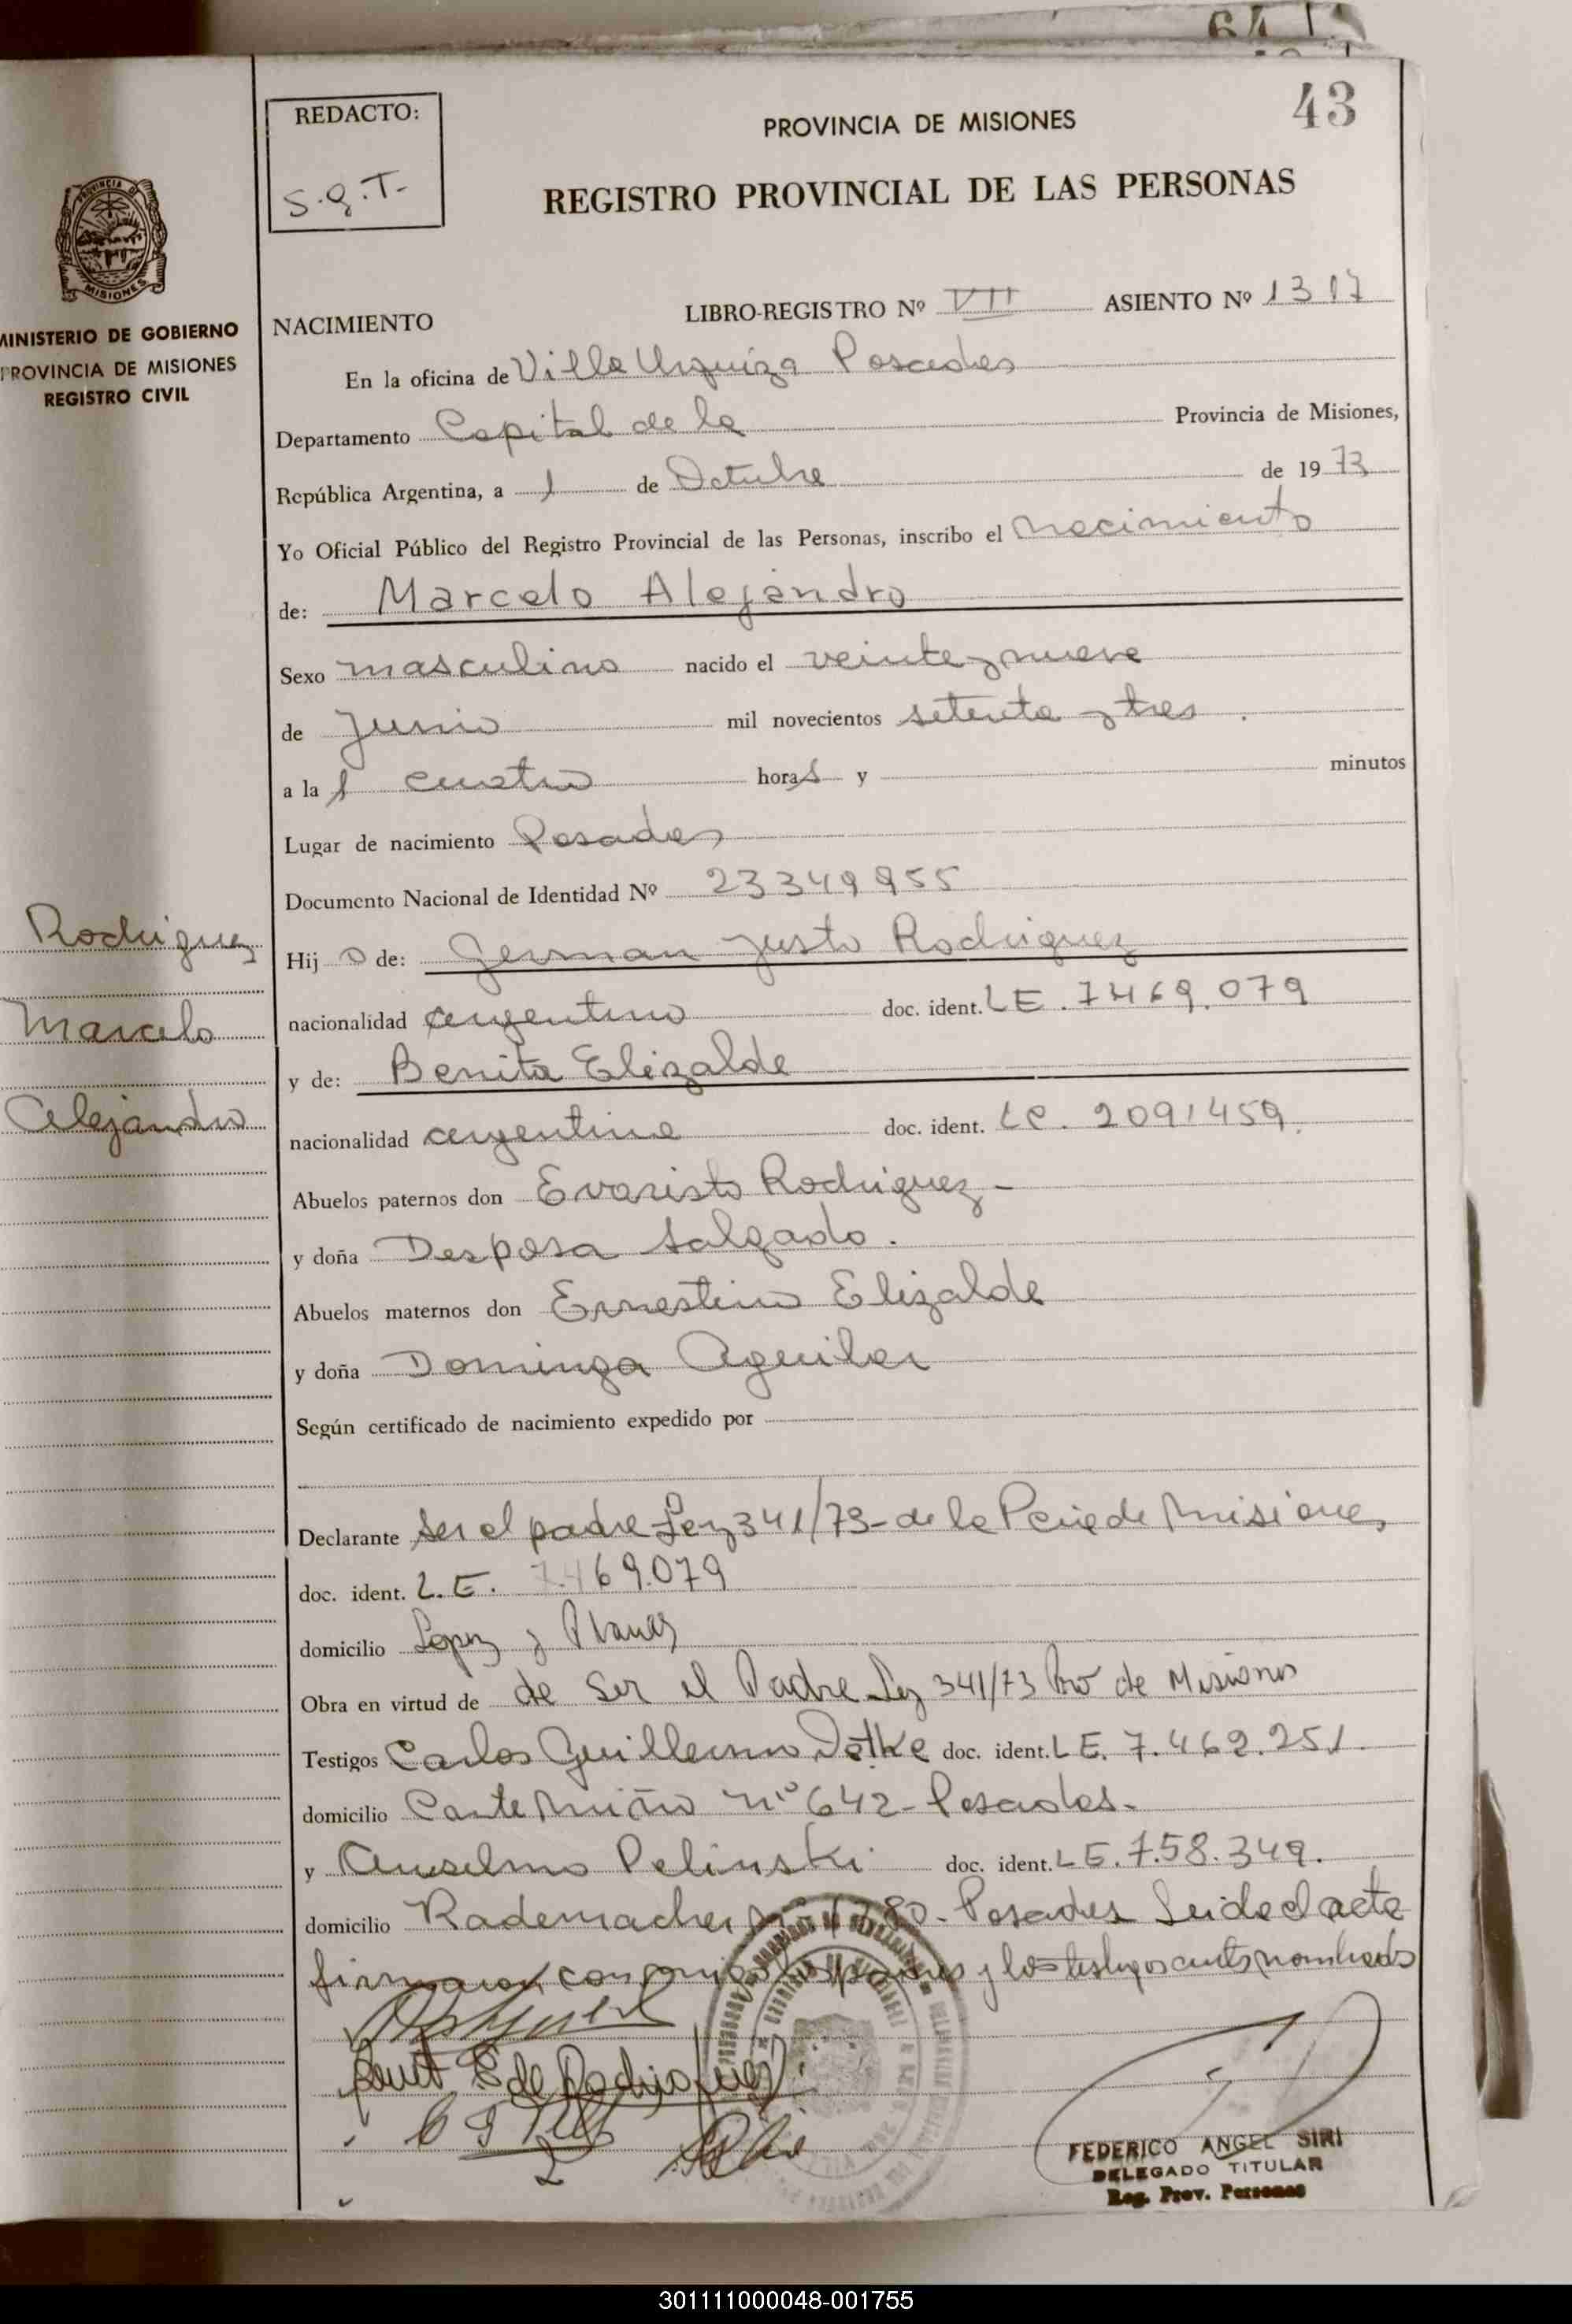 64
43
REDACTO:
S.g.T.
PROVINCIA DE MISIONES
REGISTRO PROVINCIAL DE LAS PERSONAS
PROVINCIA D
MISIONES
MINISTERIO DE GOBIERNO
PROVINCIA DE MISIONES
REGISTRO CIVIL
NACIMIENTO LIBRO-REGISTRO Nº VII ASIENTO Nº 1317
En la oficina de Villa Urquiza Posadas
Departamento Capital de la Provincia de Misiones,
República Argentina, a 1 de Octubre de 1973
Yo Oficial Público del Registro Provincial de las Personas, inscribo el nacimiento
de: Marcelo Alejandro
Sexo masculino nacido el veinte y nueve
de Junio mil novecientos setenta y tres.
a la s cuatro horas y minutos
Lugar de nacimiento Posadas
Documento Nacional de Identidad Nº 23349955
Rodriguez
Marcelo
Alejandro
Hijo de: German Justo Rodriguez
nacionalidad argentino doc. ident. LE. 7469.079
y de: Benita Elizalde
nacionalidad argentina doc. ident. LC. 2091459.
Abuelos paternos don Evaristo Rodriguez -
y doña Desposa Salgado.
Abuelos maternos don Ernestino Elizalde
y doña Dominga Aguilar
Según certificado de nacimiento expedido por
Declarante Ser el padre Ley 341/73 - de la Pcia de Misiones
doc. ident. L.E. 7.469.079
domicilio Lopez y Planes
Obra en virtud de de Ser el Padre Ley 341/73 Prov de Misiones
Testigos Carlos Guillermo doc. ident. LE. 7.469.251.
domicilio nº 642 - Posadas -
y Anselmo Pelinski doc. ident. LE. 7.58.349.
domicilio Rademacher Posadas Leida el acta
firmaron conmigo los padres y los testigos antes nombrados
de Rodriguez
FEDERICO ANGEL SIRI
DELEGADO TITULAR
Reg. Prov. Personas
301111000048-001755